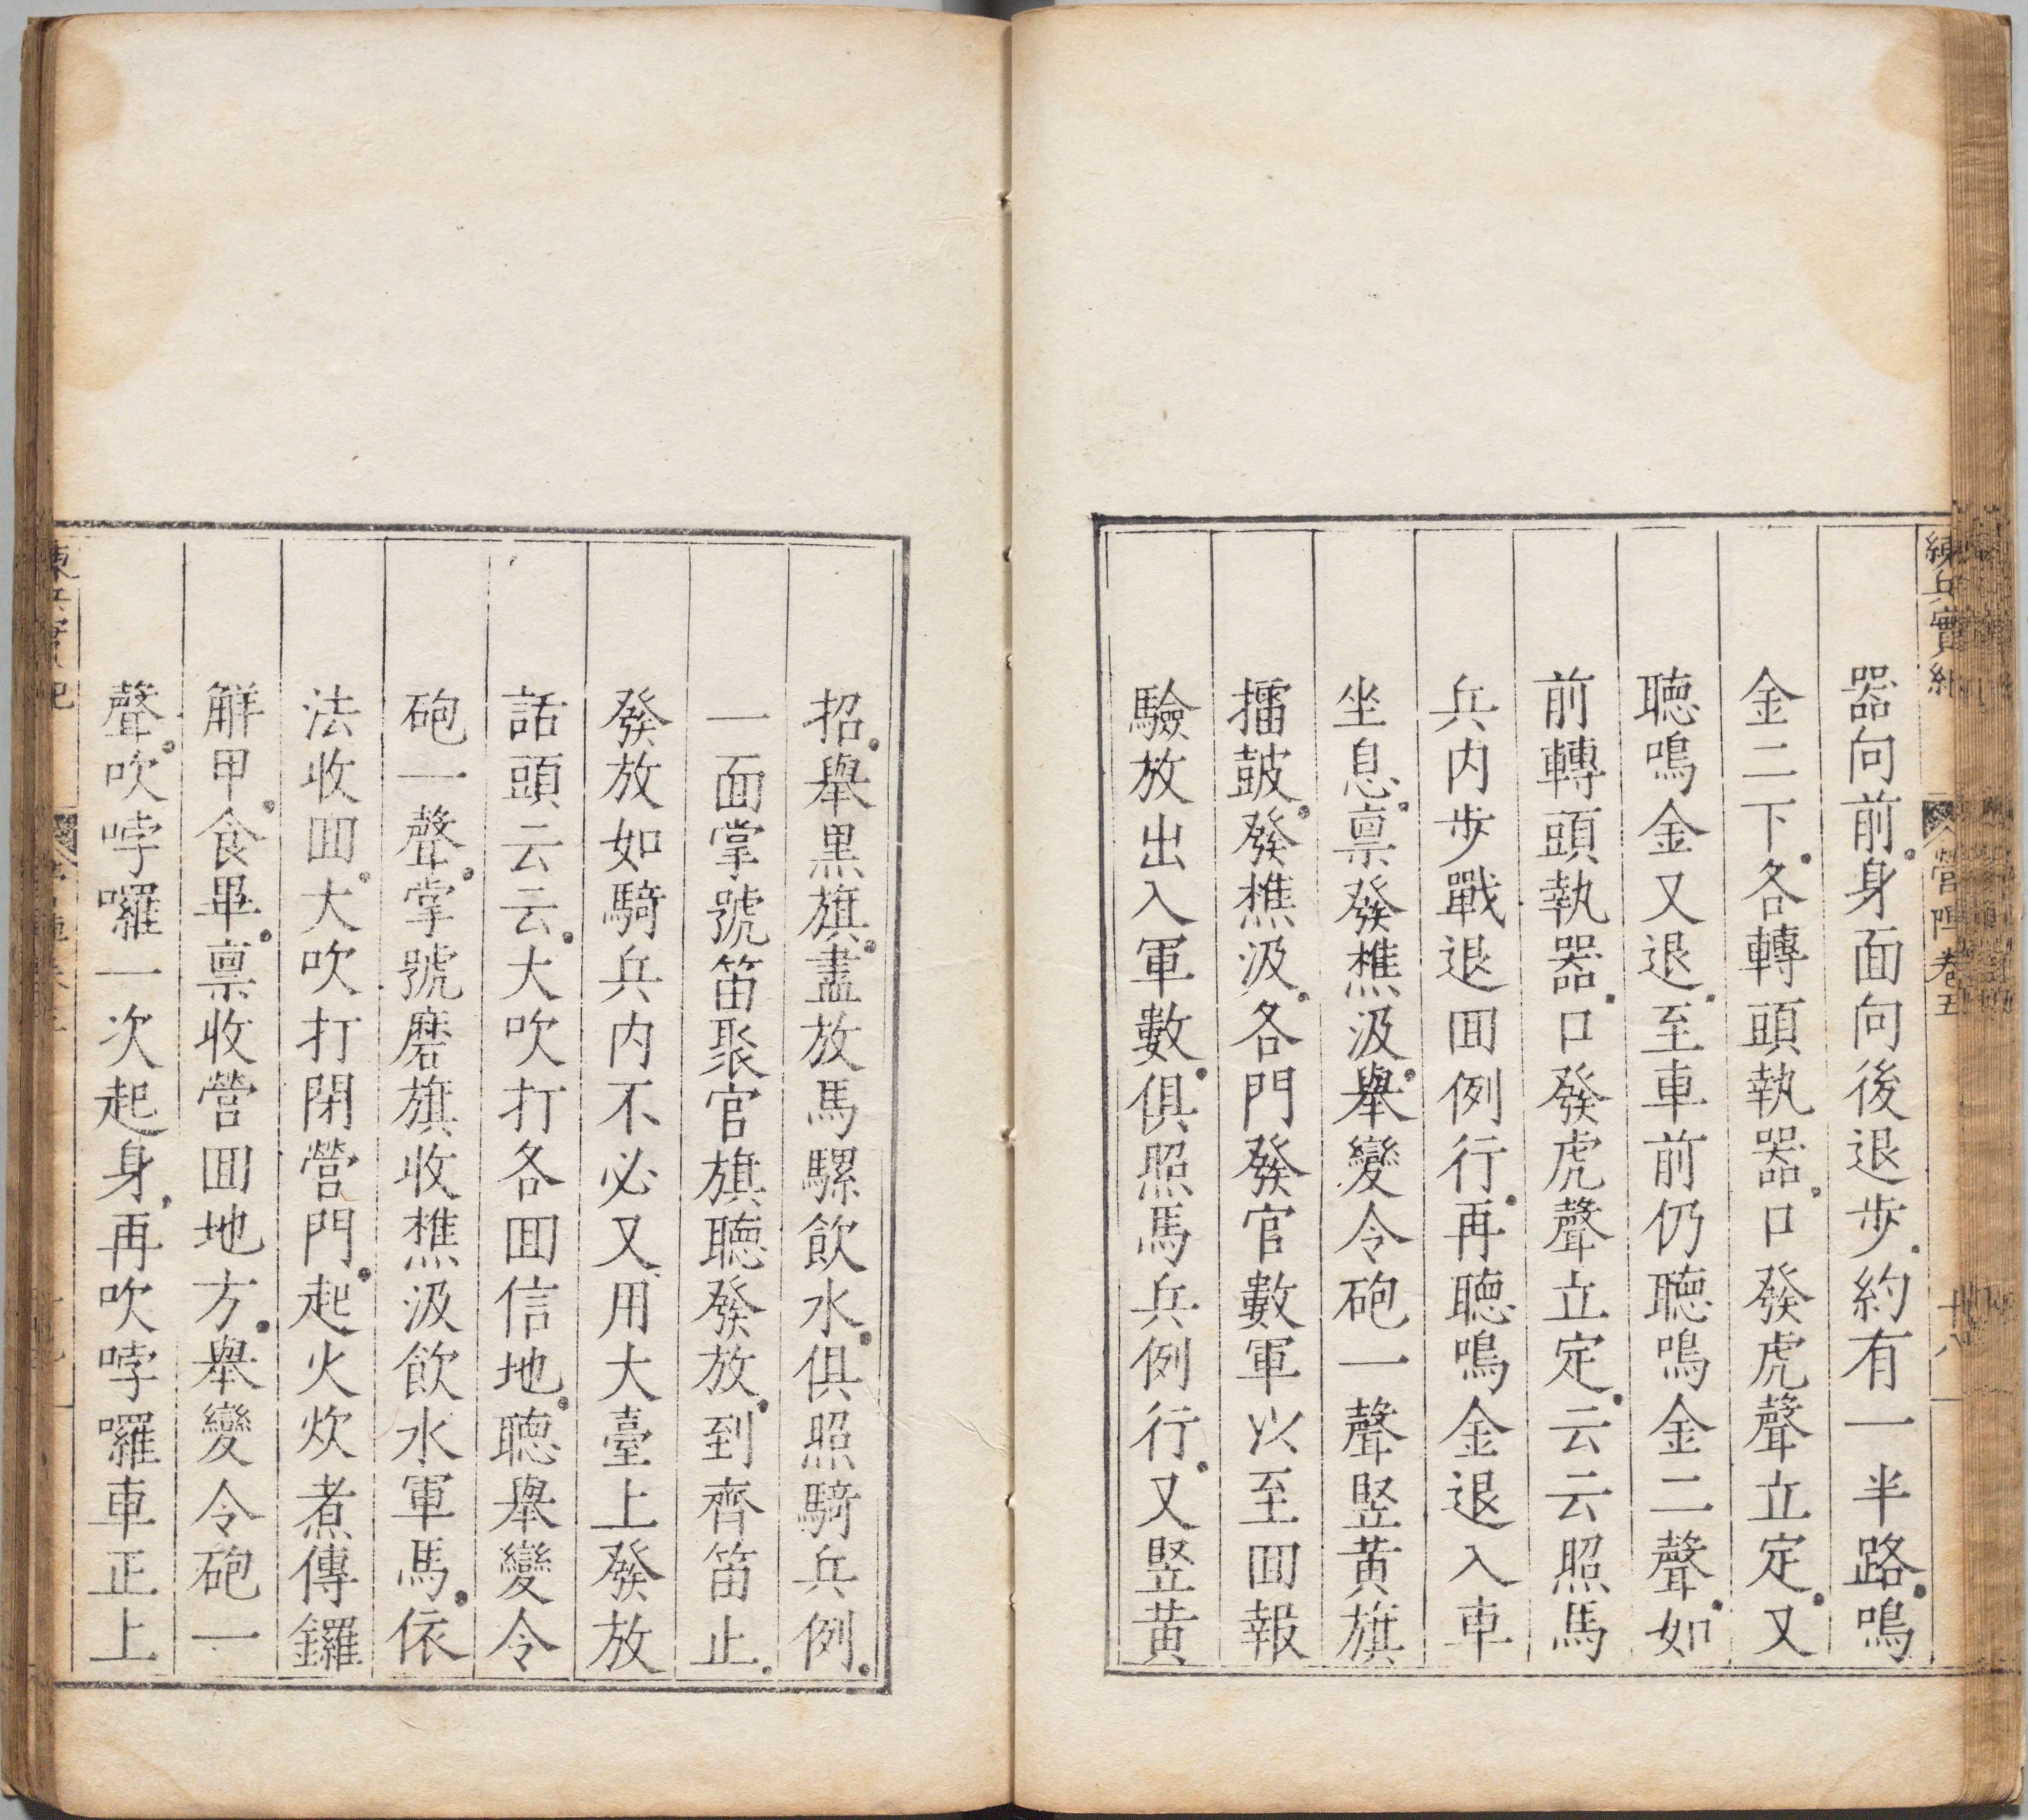 練兵實紀 營陣卷五 廿八
器向前。身面向後退步。約有一半路。鳴
金二下。各轉頭執器。口發虎聲立定。又
聴鳴金又退。至車前仍聴鳴金二聲。如
前轉頭執器。口發虎聲立定。云云照馬
兵内步戰退囬例行。再聴鳴金退入車
坐息。禀發樵汲。舉變令砲一聲竪黄旗
擂皷。發樵汲。各門發官數軍以至囬報
驗放出入軍數。俱照馬兵例行。又竪黄
招。舉黒旗。盡放馬騾飲水。俱照騎兵例。
一面掌號笛聚官旗聴發放。到齊笛止。
發放如騎兵内不必又用大臺上發放
話頭云云。大吹打各囬信地。聴舉變令
砲一聲。掌號磨旗收樵汲飲水軍馬。依
法收囬。大吹打閉營門。起火炊煮傳鑼
觧甲。食畢。禀收營囬地方。舉變令砲一
聲。吹哱囉一次起身。再吹哱囉車正上